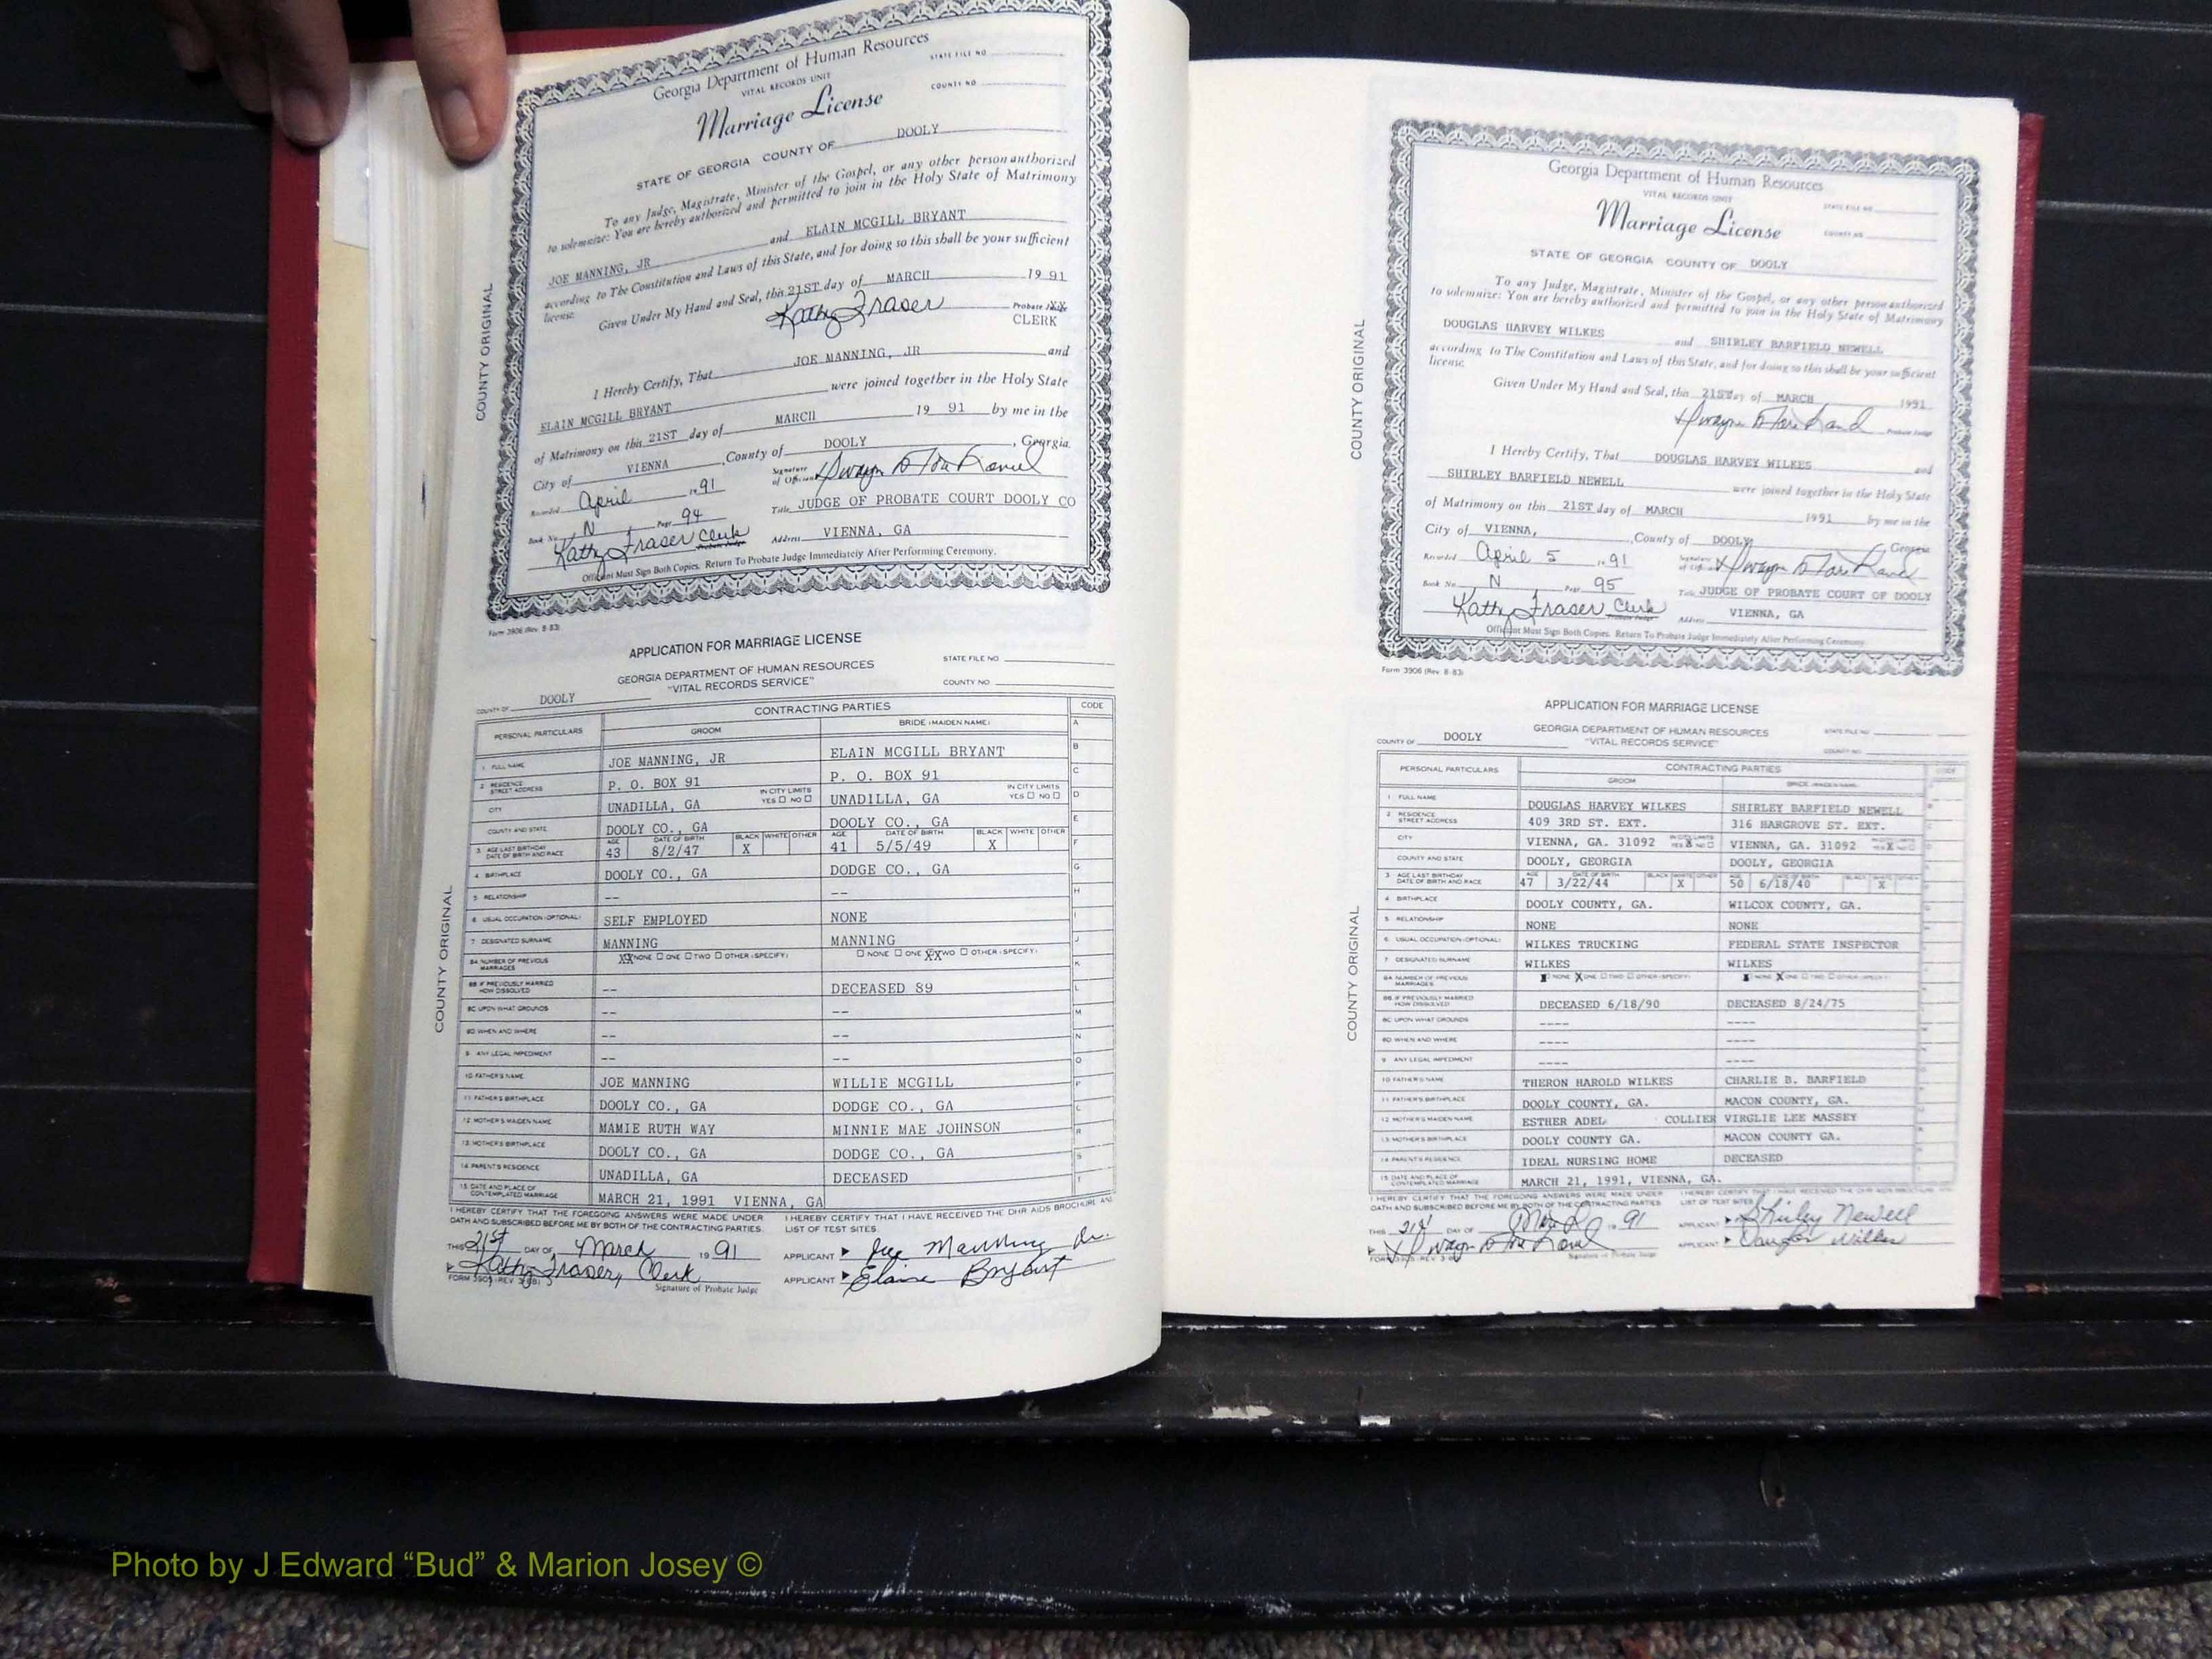 Georgia Department of Human Resources
VITAL RECORDS UNIT
STATE FILE NO
COUNTY NO
Marriage License
STATE OF GEORGIA COUNTY OF DOOLY
To any Judge, Magistrate, Minister of the Gospel, or any other person authorized
to solemnize: You are hereby authorized and permitted to join in the Holy State of Matrimony
JOE MANNING, JR and ELAIN MCGILL BRYANT
according to The Constitution and Laws of this State, and for doing so this shall be your sufficient
license.
Given Under My Hand and Seal, this 21ST day of MARCH 19 91
Kathy Fraser Probate Judge
CLERK
I Hereby Certify, That JOE MANNING, JR and
ELAIN MCGILL BRYANT were joined together in the Holy State
of Matrimony on this 21ST day of MARCH 19 91 by me in the
City of VIENNA, County of DOOLY, Georgia.
Recorded April 19 91 Signature of Official
Book No. N Page 94 Title JUDGE OF PROBATE COURT DOOLY CO
Kathy Fraser Clerk Address VIENNA, GA
Officiant Must Sign Both Copies. Return To Probate Judge Immediately After Performing Ceremony.
COUNTY ORIGINAL
Form 3906 (Rev. 8-83)
APPLICATION FOR MARRIAGE LICENSE
GEORGIA DEPARTMENT OF HUMAN RESOURCES
"VITAL RECORDS SERVICE"
STATE FILE NO
COUNTY NO
COUNTY OF DOOLY
PERSONAL PARTICULARS CONTRACTING PARTIES CODE
GROOM BRIDE (MAIDEN NAME)
1 FULL NAME JOE MANNING, JR ELAIN MCGILL BRYANT
2 RESIDENCE STREET ADDRESS P. O. BOX 91 P. O. BOX 91
CITY UNADILLA, GA IN CITY LIMITS YES ☐ NO ☐ UNADILLA, GA IN CITY LIMITS YES ☐ NO ☐
COUNTY AND STATE DOOLY CO., GA DOOLY CO., GA
3 AGE LAST BIRTHDAY DATE OF BIRTH AND RACE AGE 43 DATE OF BIRTH 8/2/47 BLACK X WHITE OTHER AGE 41 DATE OF BIRTH 5/5/49 BLACK X WHITE OTHER
4 BIRTHPLACE DOOLY CO., GA DODGE CO., GA
5 RELATIONSHIP -- --
6 USUAL OCCUPATION (OPTIONAL) SELF EMPLOYED NONE
7 DESIGNATED SURNAME MANNING MANNING
8A NUMBER OF PREVIOUS MARRIAGES XX NONE ☐ ONE ☐ TWO ☐ OTHER (SPECIFY) ☐ NONE ☐ ONE XX TWO ☐ OTHER (SPECIFY)
8B IF PREVIOUSLY MARRIED HOW DISSOLVED -- DECEASED 89
8C UPON WHAT GROUNDS -- --
8D WHEN AND WHERE -- --
9 ANY LEGAL IMPEDIMENT -- --
10 FATHER'S NAME JOE MANNING WILLIE MCGILL
11 FATHER'S BIRTHPLACE DOOLY CO., GA DODGE CO., GA
12 MOTHER'S MAIDEN NAME MAMIE RUTH WAY MINNIE MAE JOHNSON
13 MOTHER'S BIRTHPLACE DOOLY CO., GA DODGE CO., GA
14 PARENT'S RESIDENCE UNADILLA, GA DECEASED
15 DATE AND PLACE OF CONTEMPLATED MARRIAGE MARCH 21, 1991 VIENNA, GA
I HEREBY CERTIFY THAT THE FOREGOING ANSWERS WERE MADE UNDER
OATH AND SUBSCRIBED BEFORE ME BY BOTH OF THE CONTRACTING PARTIES.
I HEREBY CERTIFY THAT I HAVE RECEIVED THE DHR AIDS BROCHURE AND
LIST OF TEST SITES.
THIS 21st DAY OF March 19 91 APPLICANT Joe Manning Jr.
Kathy Fraser, Clerk APPLICANT Elaine Bryant
Signature of Probate Judge
COUNTY ORIGINAL
Georgia Department of Human Resources
VITAL RECORDS UNIT
STATE FILE NO
COUNTY NO
Marriage License
STATE OF GEORGIA COUNTY OF DOOLY
To any Judge, Magistrate, Minister of the Gospel, or any other person authorized
to solemnize: You are hereby authorized and permitted to join in the Holy State of Matrimony
DOUGLAS HARVEY WILKES and SHIRLEY BARFIELD NEWELL
according to The Constitution and Laws of this State, and for doing so this shall be your sufficient
license.
Given Under My Hand and Seal, this 21ST day of MARCH 1991
Probate Judge
I Hereby Certify, That DOUGLAS HARVEY WILKES and
SHIRLEY BARFIELD NEWELL were joined together in the Holy State
of Matrimony on this 21ST day of MARCH 1991 by me in the
City of VIENNA, County of DOOLY, Georgia
Recorded April 5 19 91 Signature of Official
Book No. N Page 95 Title JUDGE OF PROBATE COURT OF DOOLY
Kathy Fraser Clerk Address VIENNA, GA
Officiant Must Sign Both Copies. Return To Probate Judge Immediately After Performing Ceremony.
COUNTY ORIGINAL
Form 3906 (Rev. 8-83)
APPLICATION FOR MARRIAGE LICENSE
GEORGIA DEPARTMENT OF HUMAN RESOURCES
"VITAL RECORDS SERVICE"
STATE FILE NO
COUNTY NO
COUNTY OF DOOLY
PERSONAL PARTICULARS CONTRACTING PARTIES CODE
GROOM BRIDE (MAIDEN NAME)
1 FULL NAME DOUGLAS HARVEY WILKES SHIRLEY BARFIELD NEWELL
2 RESIDENCE STREET ADDRESS 409 3RD ST. EXT. 316 HARGROVE ST. EXT.
CITY VIENNA, GA. 31092 IN CITY LIMITS YES X NO ☐ VIENNA, GA. 31092 YES X NO ☐
COUNTY AND STATE DOOLY, GEORGIA DOOLY, GEORGIA
3 AGE LAST BIRTHDAY DATE OF BIRTH AND RACE AGE 47 DATE OF BIRTH 3/22/44 BLACK WHITE X OTHER AGE 50 DATE OF BIRTH 6/18/40 BLACK WHITE X OTHER
4 BIRTHPLACE DOOLY COUNTY, GA. WILCOX COUNTY, GA.
5 RELATIONSHIP NONE NONE
6 USUAL OCCUPATION (OPTIONAL) WILKES TRUCKING FEDERAL STATE INSPECTOR
7 DESIGNATED SURNAME WILKES WILKES
8A NUMBER OF PREVIOUS MARRIAGES NONE X ONE ☐ TWO ☐ OTHER (SPECIFY) NONE X ONE ☐ TWO ☐ OTHER (SPECIFY)
8B IF PREVIOUSLY MARRIED HOW DISSOLVED DECEASED 6/18/90 DECEASED 8/24/75
8C UPON WHAT GROUNDS ---- ----
8D WHEN AND WHERE ---- ----
9 ANY LEGAL IMPEDIMENT ---- ----
10 FATHER'S NAME THERON HAROLD WILKES CHARLIE B. BARFIELD
11 FATHER'S BIRTHPLACE DOOLY COUNTY, GA. MACON COUNTY, GA.
12 MOTHER'S MAIDEN NAME ESTHER ADEL COLLIER VIRGLIE LEE MASSEY
13 MOTHER'S BIRTHPLACE DOOLY COUNTY GA. MACON COUNTY GA.
14 PARENT'S RESIDENCE IDEAL NURSING HOME DECEASED
15 DATE AND PLACE OF CONTEMPLATED MARRIAGE MARCH 21, 1991, VIENNA, GA.
I HEREBY CERTIFY THAT THE FOREGOING ANSWERS WERE MADE UNDER
OATH AND SUBSCRIBED BEFORE ME BY BOTH OF THE CONTRACTING PARTIES
I HEREBY CERTIFY THAT I HAVE RECEIVED THE DHR AIDS BROCHURE AND
LIST OF TEST SITES
THIS 21st DAY OF 19 91 APPLICANT Shirley Newell
APPLICANT Douglas Wilkes
Signature of Probate Judge
COUNTY ORIGINAL
Photo by J Edward “Bud” & Marion Josey ©